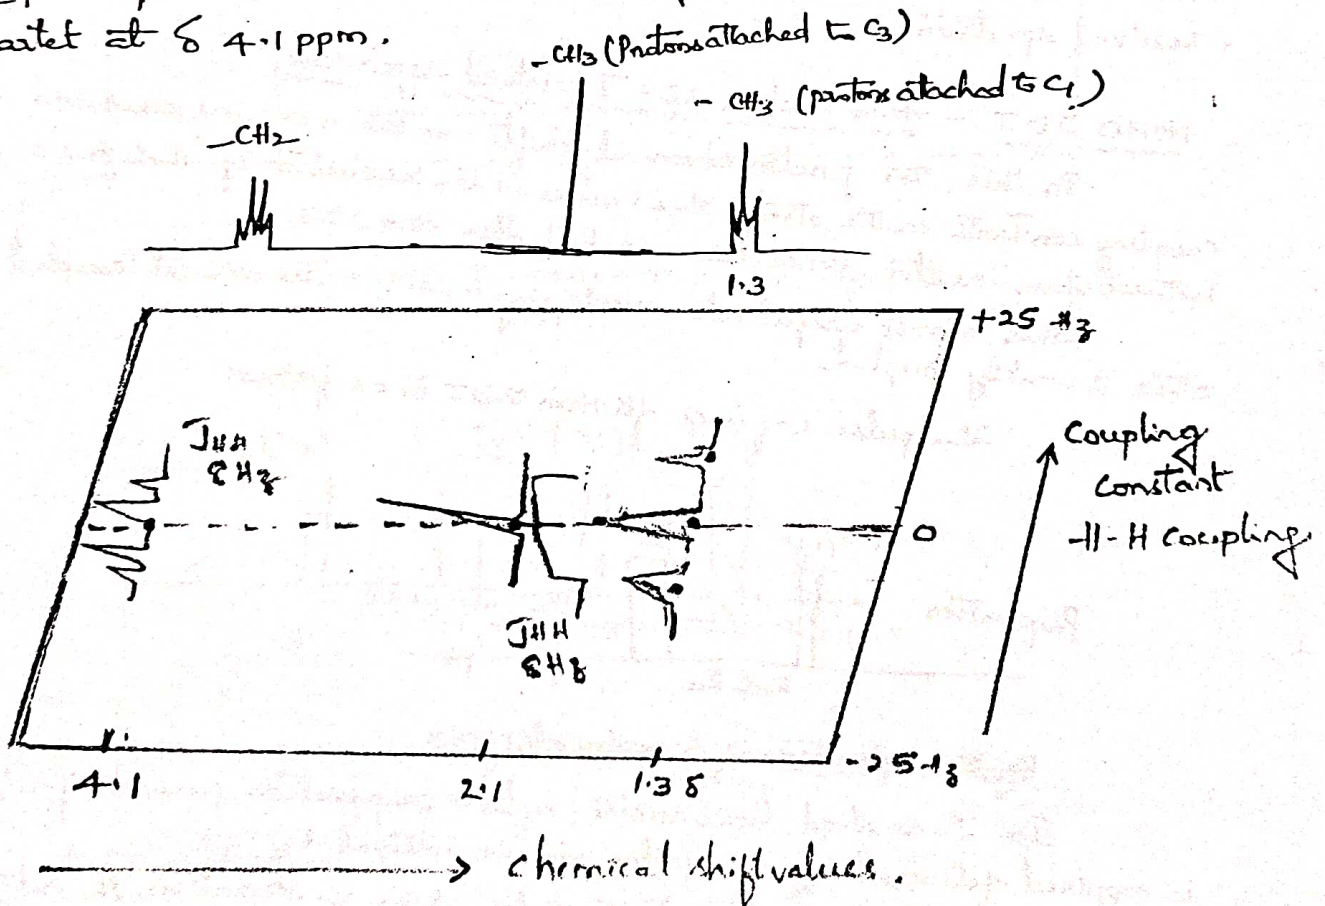 at δ 4.1 ppm.
-CH3 (Protons attached to C3)
- CH3 (protons atached to C1)
-CH2
1.3
+25 Hz
JHH
8Hz
Coupling
constant
H-H coupling.
0
JHH
8Hz
-25Hz
4.1
2.1
1.3 δ
chemical shift values.